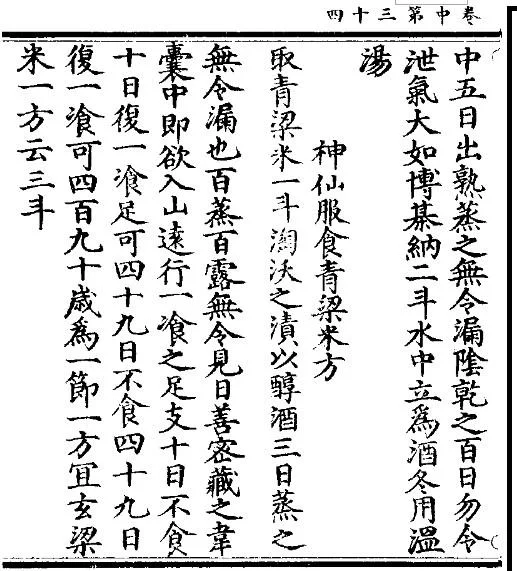 四十三第中卷
中五日出熟蒸之無令漏陰乾之百日勿令
泄氣大如博棊納二斗水中立爲酒冬用溫
湯
神仙服食青粱米方
取青粱米一斗淘沃之漬以醇酒三日蒸之
無令漏也百蒸百露無令見日善密藏之韋
囊中即欲入山遠行一飡之足支十日不食
十日復一飡足可四十九日不食四十九日
復一飡可四百九十歲爲一節一方宜玄粱
米一方云三斗